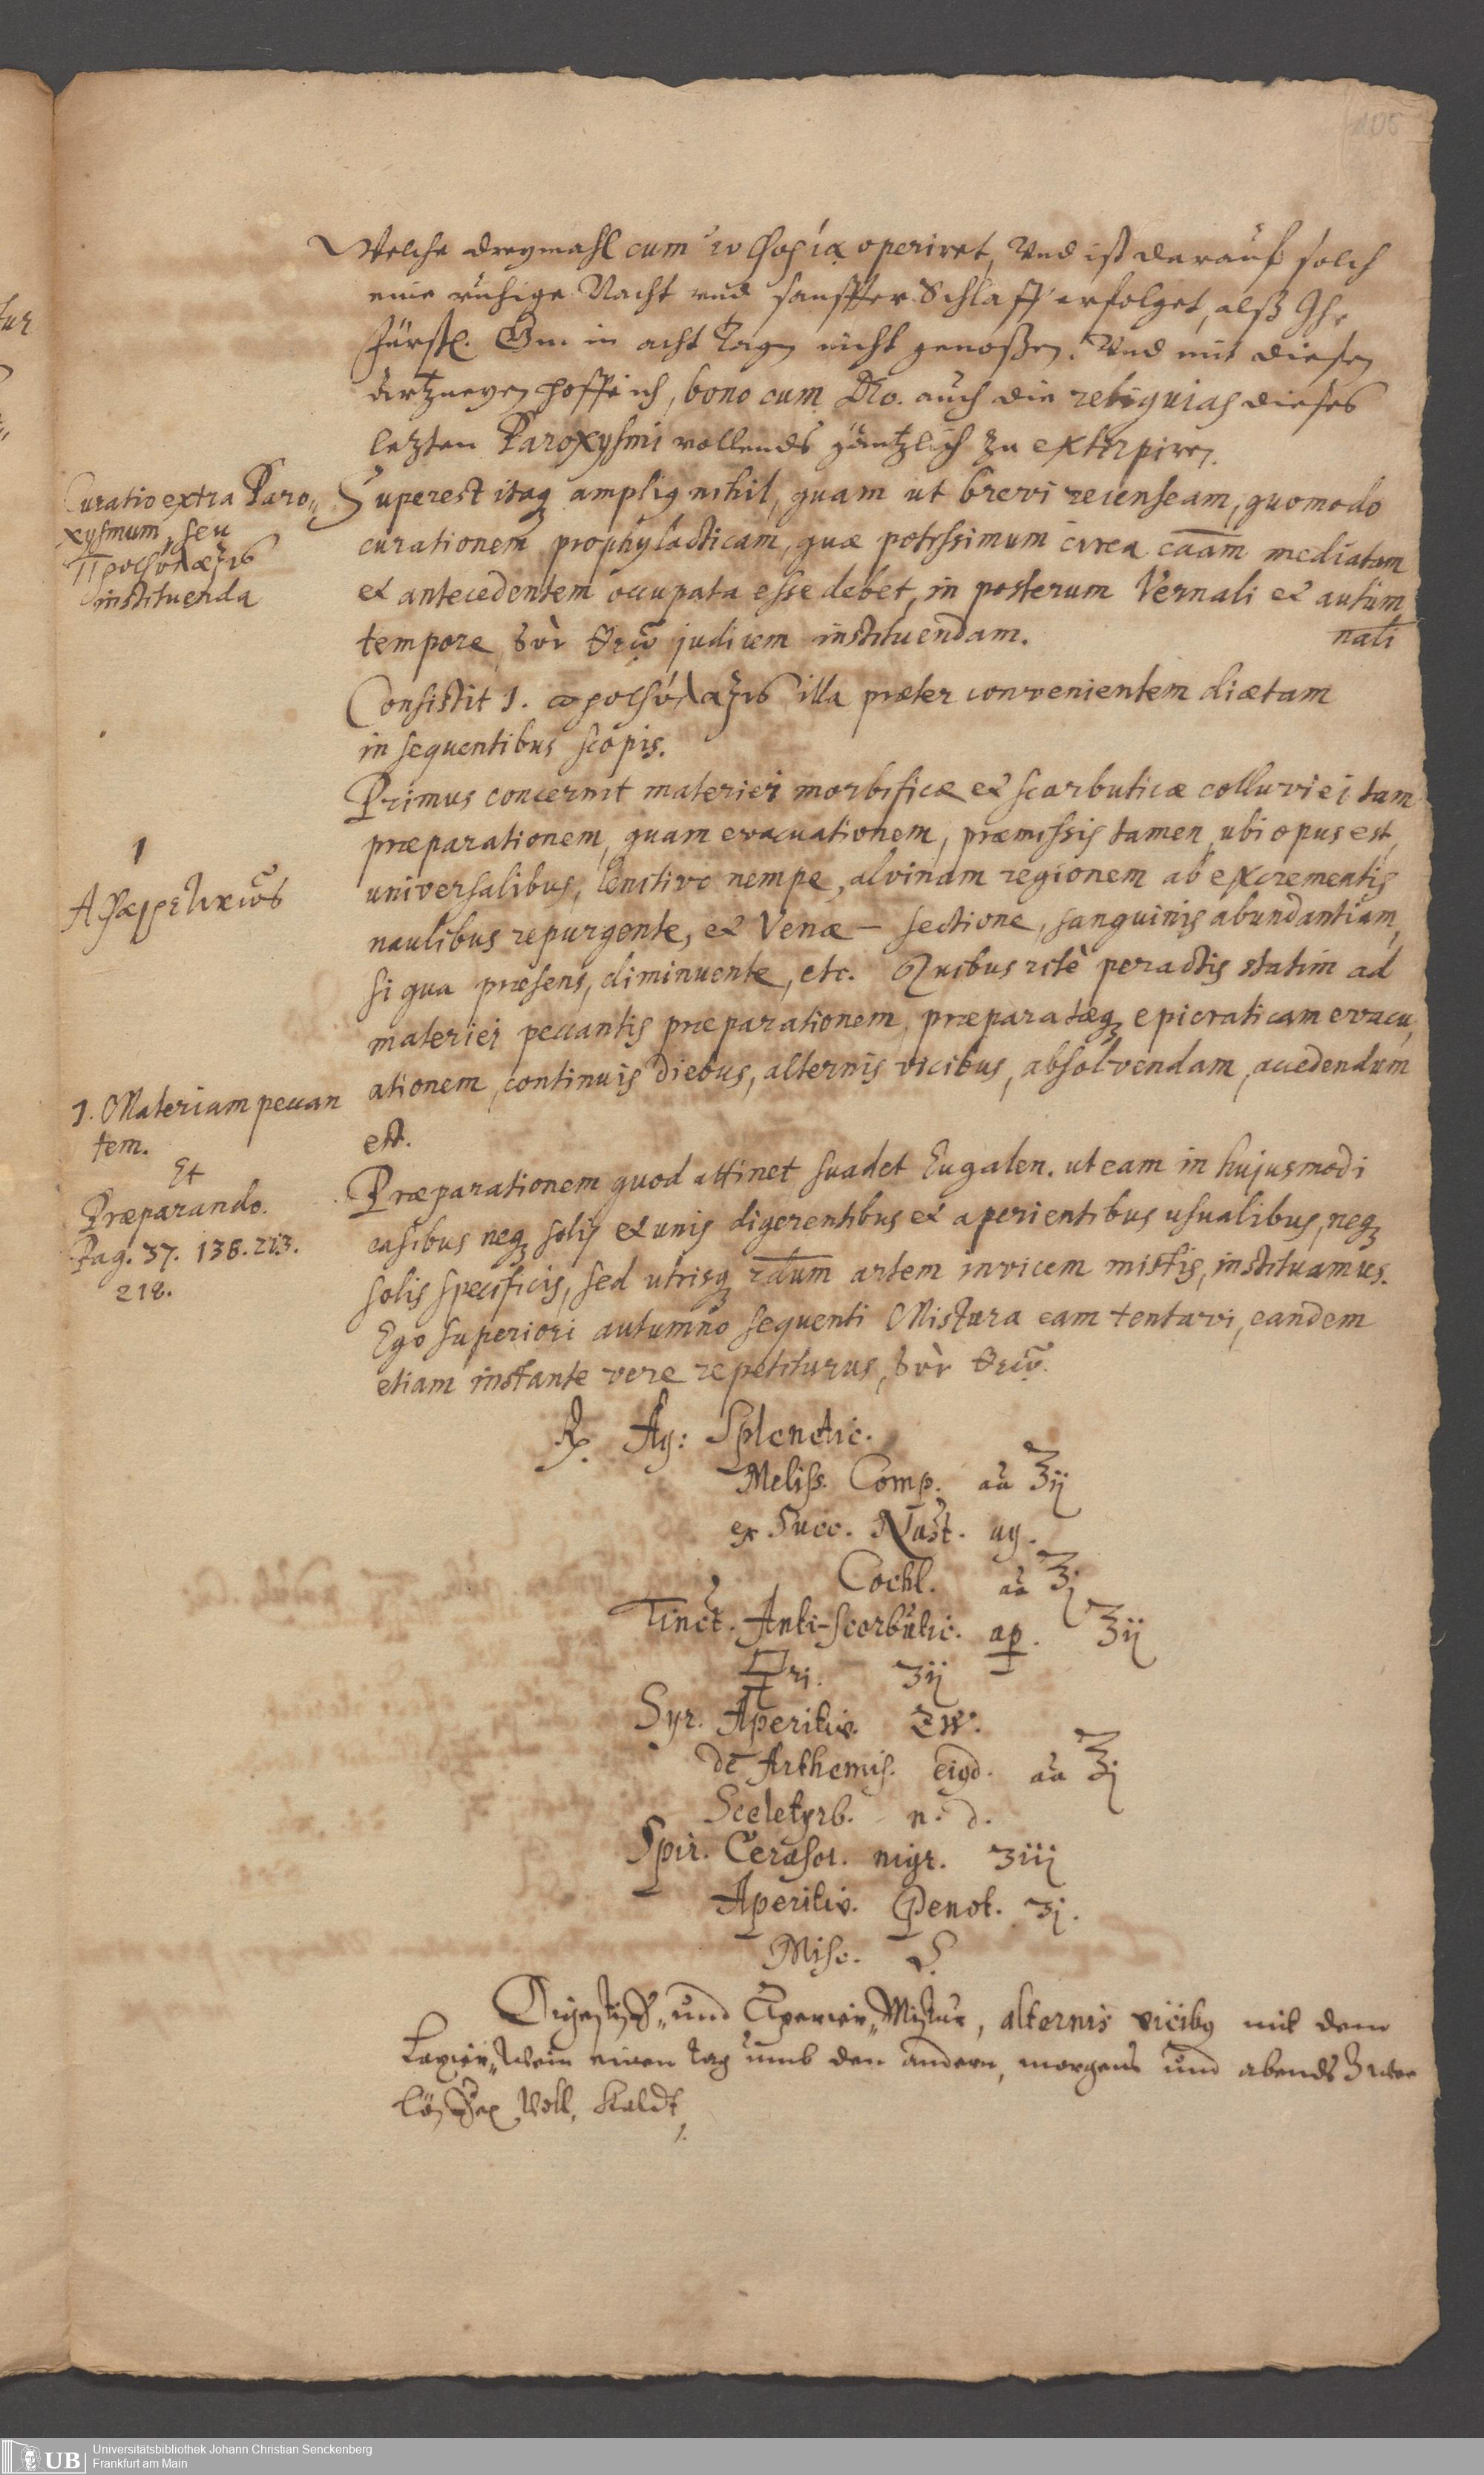 105
Welche dreymahl cum εὐφορίᾳ operiret, Vnd ist darauf solch
eine ruhige Nacht vnd sanffter Schlaff erfolget, alß Ihr
Fürstl. Gn. in acht Tagen nicht genoßen. Vnd mit diesen
Artzneyen hoff ich, bono cum Deo. auch die reliquias dieses
letzten Paroxysmi vollends gäntzlich zu extirpiren.
Curatio extra Paro„
xysmum, seu
Προφύλαξις
instituenda
Superest itaq; ampli9 nihil, quam ut brevi recenseam, quomodo
curationem prophylacticam, quæ potissimum circa cãam mediatam
et antecedentem occupata esse debet, in posterum Vernali et autum
nali
tempore, σὺν θεῷ judicem instituendam.
Consistit 1. προφύλαξις illa præter convenientem diætam
in sequentibus scopis.
1
Ἀφαιρετικῶς
Primus concernit materiei morbificæ et scorbuticæ colluviei tam
præparationem, quam evacuationem, præmissis tamen, ubi opus est,
universalibus, lenitivo nempe, alvinam regionem ab excrementis
naulibus repurgente, et Venæ - sectione, sanguinis abundantiam,
si qua præsens, diminuente, etc. Quibus ritè peractis statim ad
materiei peccantis præparationem, præparatæq; epicraticam evacu„
ationem, continuis diebus, alternis vicibus, absolvendam, accedendum
est.
1. Materiam peccan
tem.
Et
Præparando.
Pag. 37. 138. 213.
218.
Præparationem quod attinet suadet Eugalen. ut eam in hujusmodi
casibus neq; solis et unis digerentibus et aperientibus usualibus, neq;
solis specificis, sed utrisq; sedum artem invicem mistis, instituamus.
Ego superiori autumno sequenti Mistura eam tentavi, eandem
etiam instante vere repetiturus, σὺν θεῷ.
℞. Aq: Splenetic.
Meliss. Comp. aã ℥ij
ex Succ. Nast. aq.
Cochl. aã ℥j
Tinct. Anti-scorbutic. ap. ℥ij
🜿ri. ʒij
Syr. Aperitiv.
de Arthemis. eiusd. aã ℥j
Sceletyrb. n. d.
Spir. Cerasor. nigr. ʒiij
Aperitiv. Penot. ʒj.
Misc. S.
Digestiff„ und Aperier„ Mixtur, alternis vicib9 mit dem
Laxier„ Wein einen tag umb den andern, morgens und abends Zwee
Löffel Voll, kaldt.
Universitätsbibliothek Johann Christian Senckenberg
Frankfurt am Main
UB